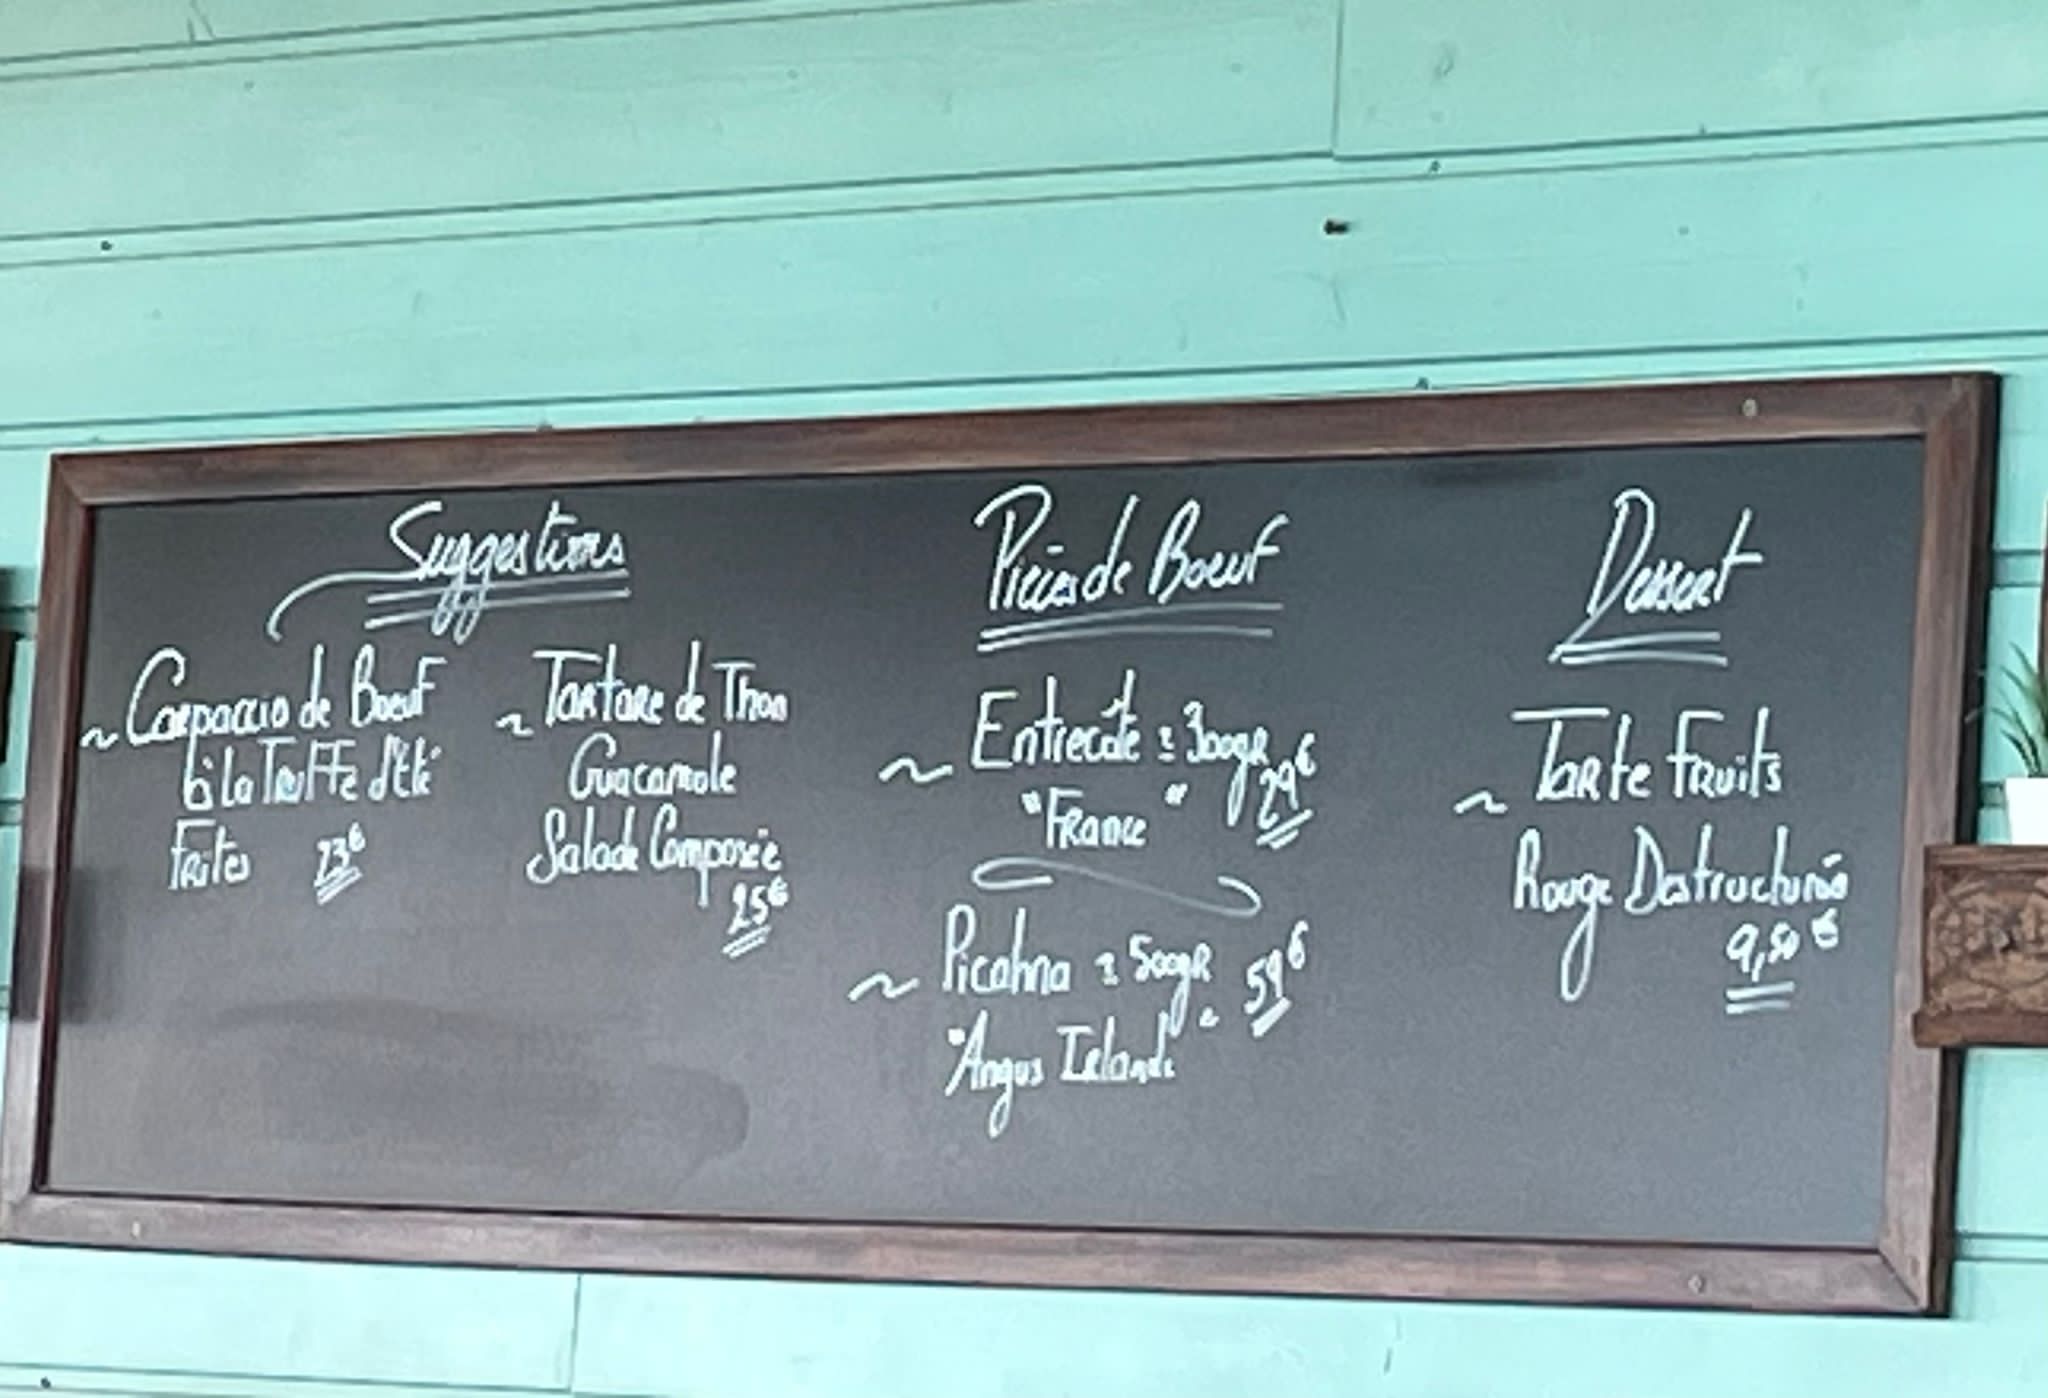 Suggestions
~ Carpaccio de Boeuf
à la Truffe d'Eté
Frites 23€
~ Tartare de Thon
Guacamole
Salade Composée
25€
Pièces de Boeuf
~ Entrecôte ± 300gr
"France" 29€
~ Picahna ± 500gr 59€
"Angus Irlande"
Dessert
~ Tarte Fruits
Rouge Destructurée
9,50€